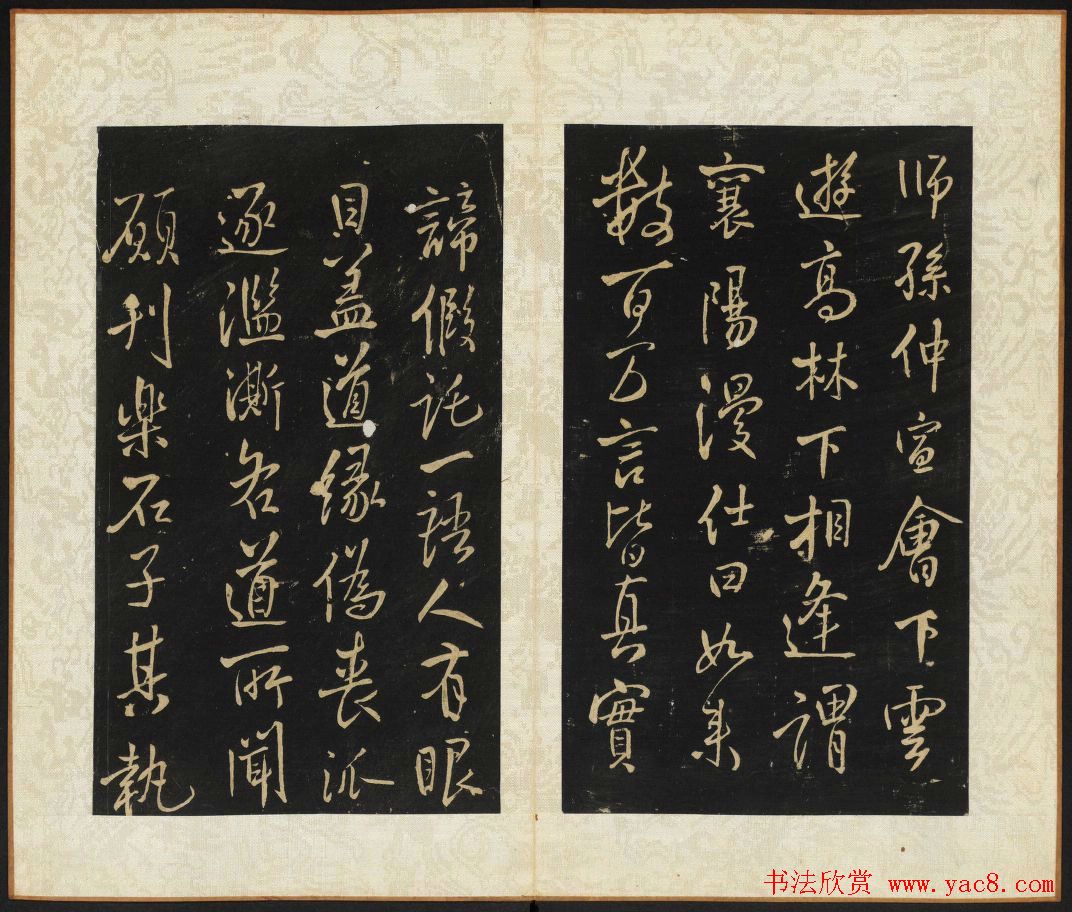 师孫仲宣會下雲
遊高林下相逢謂
襄陽漫仕曰如来
數百万言皆真實
諦假託一語人有眼
見盖道緣偽喪派
逐濫澌各道所聞
願刊樂石子其執
书法欣赏 www.yac8.com